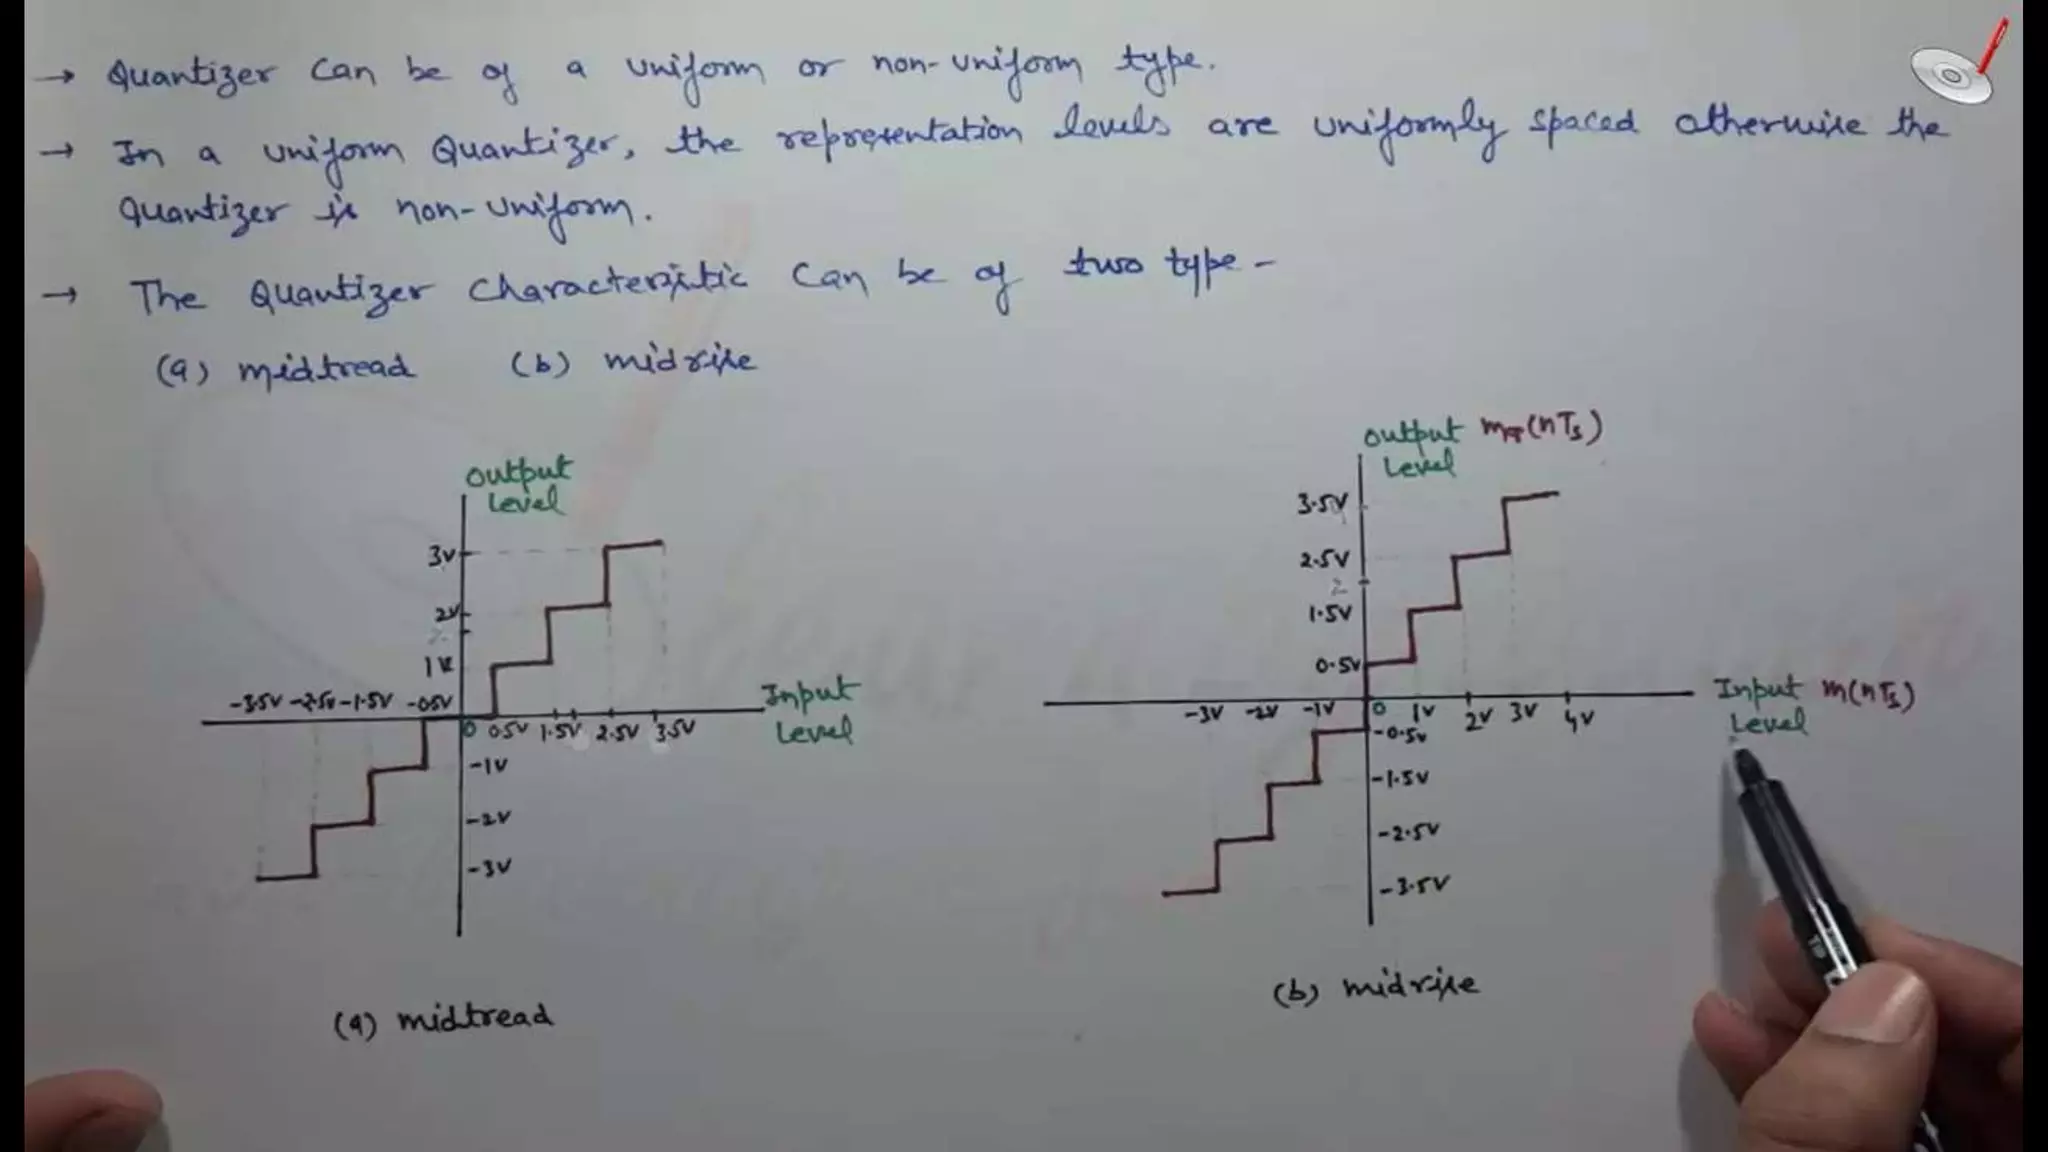 → Quantizer can be of a uniform or non-uniform type.
→ In a uniform Quantizer, the representation levels are uniformly spaced otherwise the
Quantizer is non-uniform.
→ The Quantizer characteristic can be of two type -
(a) midtread (b) midrise
Output
Level
3V
2V
1V
-3.5V -2.5V -1.5V -0.5V
0 0.5V 1.5V 2.5V 3.5V
Input
Level
-1V
-2V
-3V
(a) midtread
Output mq(nTs)
Level
3.5V
2.5V
2
1.5V
0.5V
-3V -2V -1V 0 1V 2V 3V 4V
Input m(nTs)
Level
-0.5V
-1.5V
-2.5V
-3.5V
(b) midrise